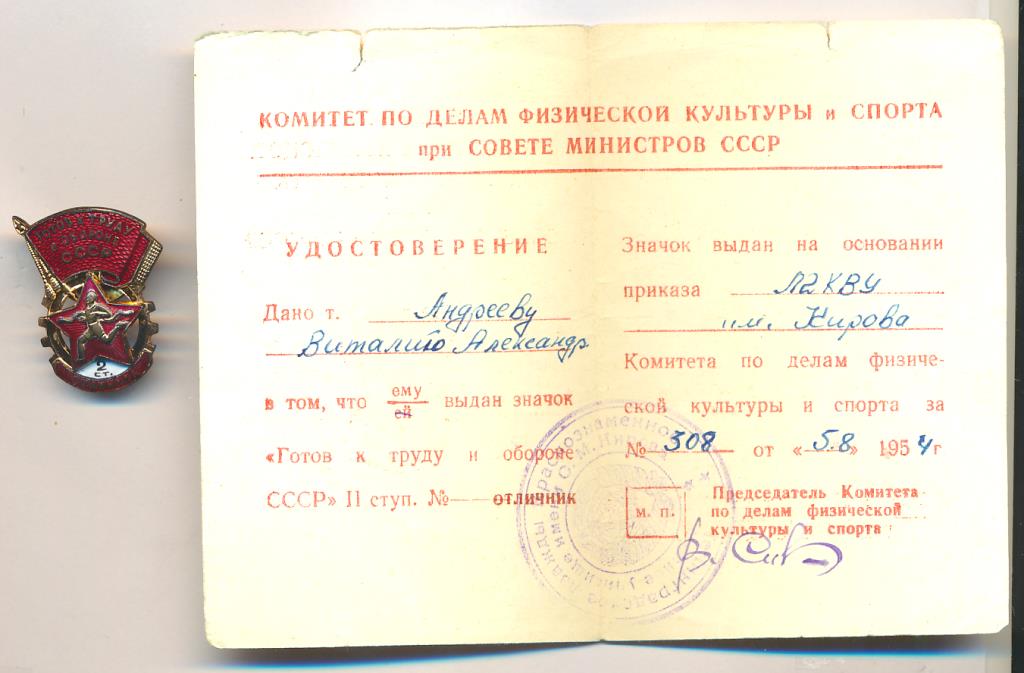 КОМИТЕТ ПО ДЕЛАМ ФИЗИЧЕСКОЙ КУЛЬТУРЫ и СПОРТА
при СОВЕТЕ МИНИСТРОВ СССР
УДОСТОВЕРЕНИЕ
Дано т. Андрееву
Виталию Александр
в том, что ему
ей
выдан значок
«Готов к труду и обороне
СССР» II ступ. № — отличник
Значок выдан на основании
приказа Л2КВУ
им. Кирова
Комитета по делам физиче-
ской культуры и спорта за
№ 308 от «5.8» 1954 г
м. п.
Председатель Комитета
по делам физической
культуры и спорта
СССР
2
СТ.